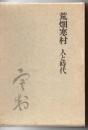 荒畑寒村
人と時代
寒村